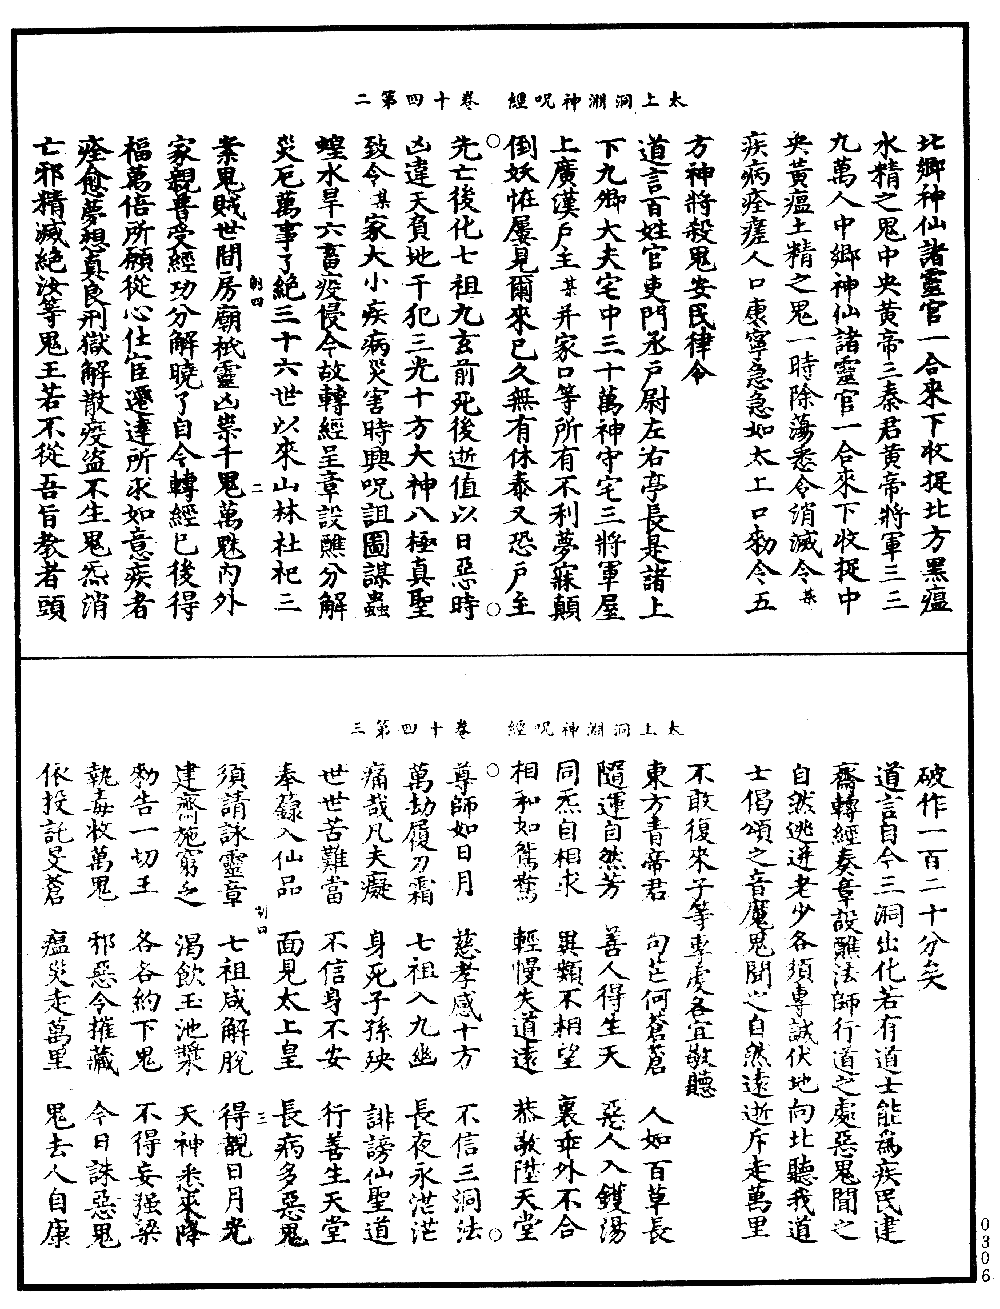 太上洞淵神呪經　卷十四第二
北鄉神仙諸靈官一合來下收捉北方黑瘟
水精之鬼中央黃帝三秦君黃帝將軍三三
九萬人中鄉神仙諸靈官一合來下收捉中
央黃瘟土精之鬼一時除蕩悉令消滅令某
疾病痊瘥人口康寧急急如太上口勑令五
方神將殺鬼安民律令
道言百姓官吏門丞戶尉左右亭長是諸上
下九卿大夫宅中三十萬神守宅三將軍屋
上廣漢戶主某并家口等所有不利夢寐顛
倒妖恠屢見爾來已久無有休泰又恐戶主
先亡後化七祖九玄前死後逝值以日惡時
凶違天負地干犯三光十方大神八極真聖
致令某家大小疾病災害時興呪詛圖謀蟲
蝗水旱六畜疫侵令故轉經呈章設醮分解
災厄萬事了絕三十六世以來山林社祀三
㓝四　二
業鬼賊世間房廟祇靈凶祟千鬼萬魅內外
家親普受經功分解曉了自今轉經已後得
福萬倍所願從心仕宦遷達所求如意疾者
痊愈夢想真良刑獄解散疫盜不生鬼炁消
亡邪精滅絕汝等鬼王若不從吾旨教者頭
太上洞淵神呪經　卷十四第三
破作一百二十分矣
道言自今三洞出化若有道士能為疾民建
齋轉經奏章設醮法師行道之處惡鬼聞之
自然逃迸老少各須專誠伏地向北聽我道
士偈頌之音魔鬼聞之自然遠逝斥走萬里
不敢復來子等專受各宜敬聽
東方青帝君　句芒何蒼蒼　人如百草長
隨運自然芳　善人得生天　惡人入鑊湯
同炁自相求　異類不相望　裏乖外不合
相和如鴛鴦　輕慢失道遠　恭敬陞天堂
尊師如日月　慈孝感十方　不信三洞法
萬劫履刀霜　七祖入九幽　長夜永茫茫
痛哉凡夫癡　身死子孫殃　誹謗仙聖道
世世苦難當　不信身不安　行善生天堂
奉籙入仙品　面見太上皇　長病多惡鬼
㓝四　三
須請詠靈章　七祖咸解脫　得覩日月光
建齋施窮乏　渴飲玉池漿　天神悉來降
勑告一切王　各各約下鬼　不得妄強梁
執毒收萬鬼　邪惡令摧藏　今日誅惡鬼
依投託旻蒼　瘟災走萬里　鬼去人自康
0306